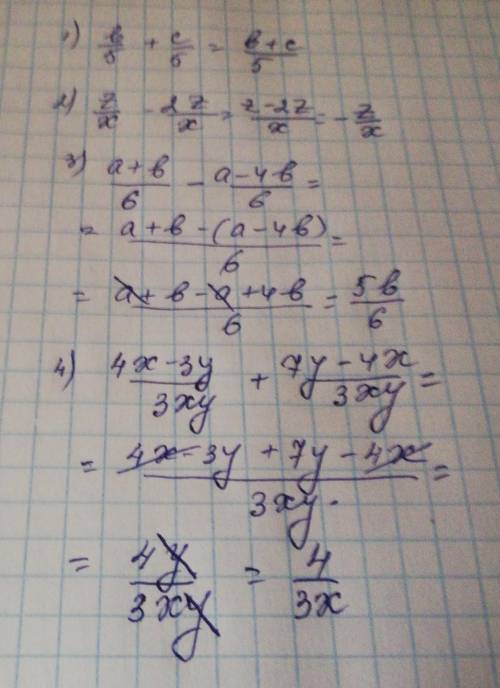 1) в/5 + c/5 = в+c/5
2) z/x - 2z/x = z-2z/x = -z/x
3) a+в/6 - a-4в/6 =
= a+в-(a-4в)/6 =
= a+в-a+4в/6 = 5в/6
4) 4x-3y/3xy + 7y-4x/3xy =
= 4x-3y+7y-4x/3xy =
= 4y/3xy = 4/3x